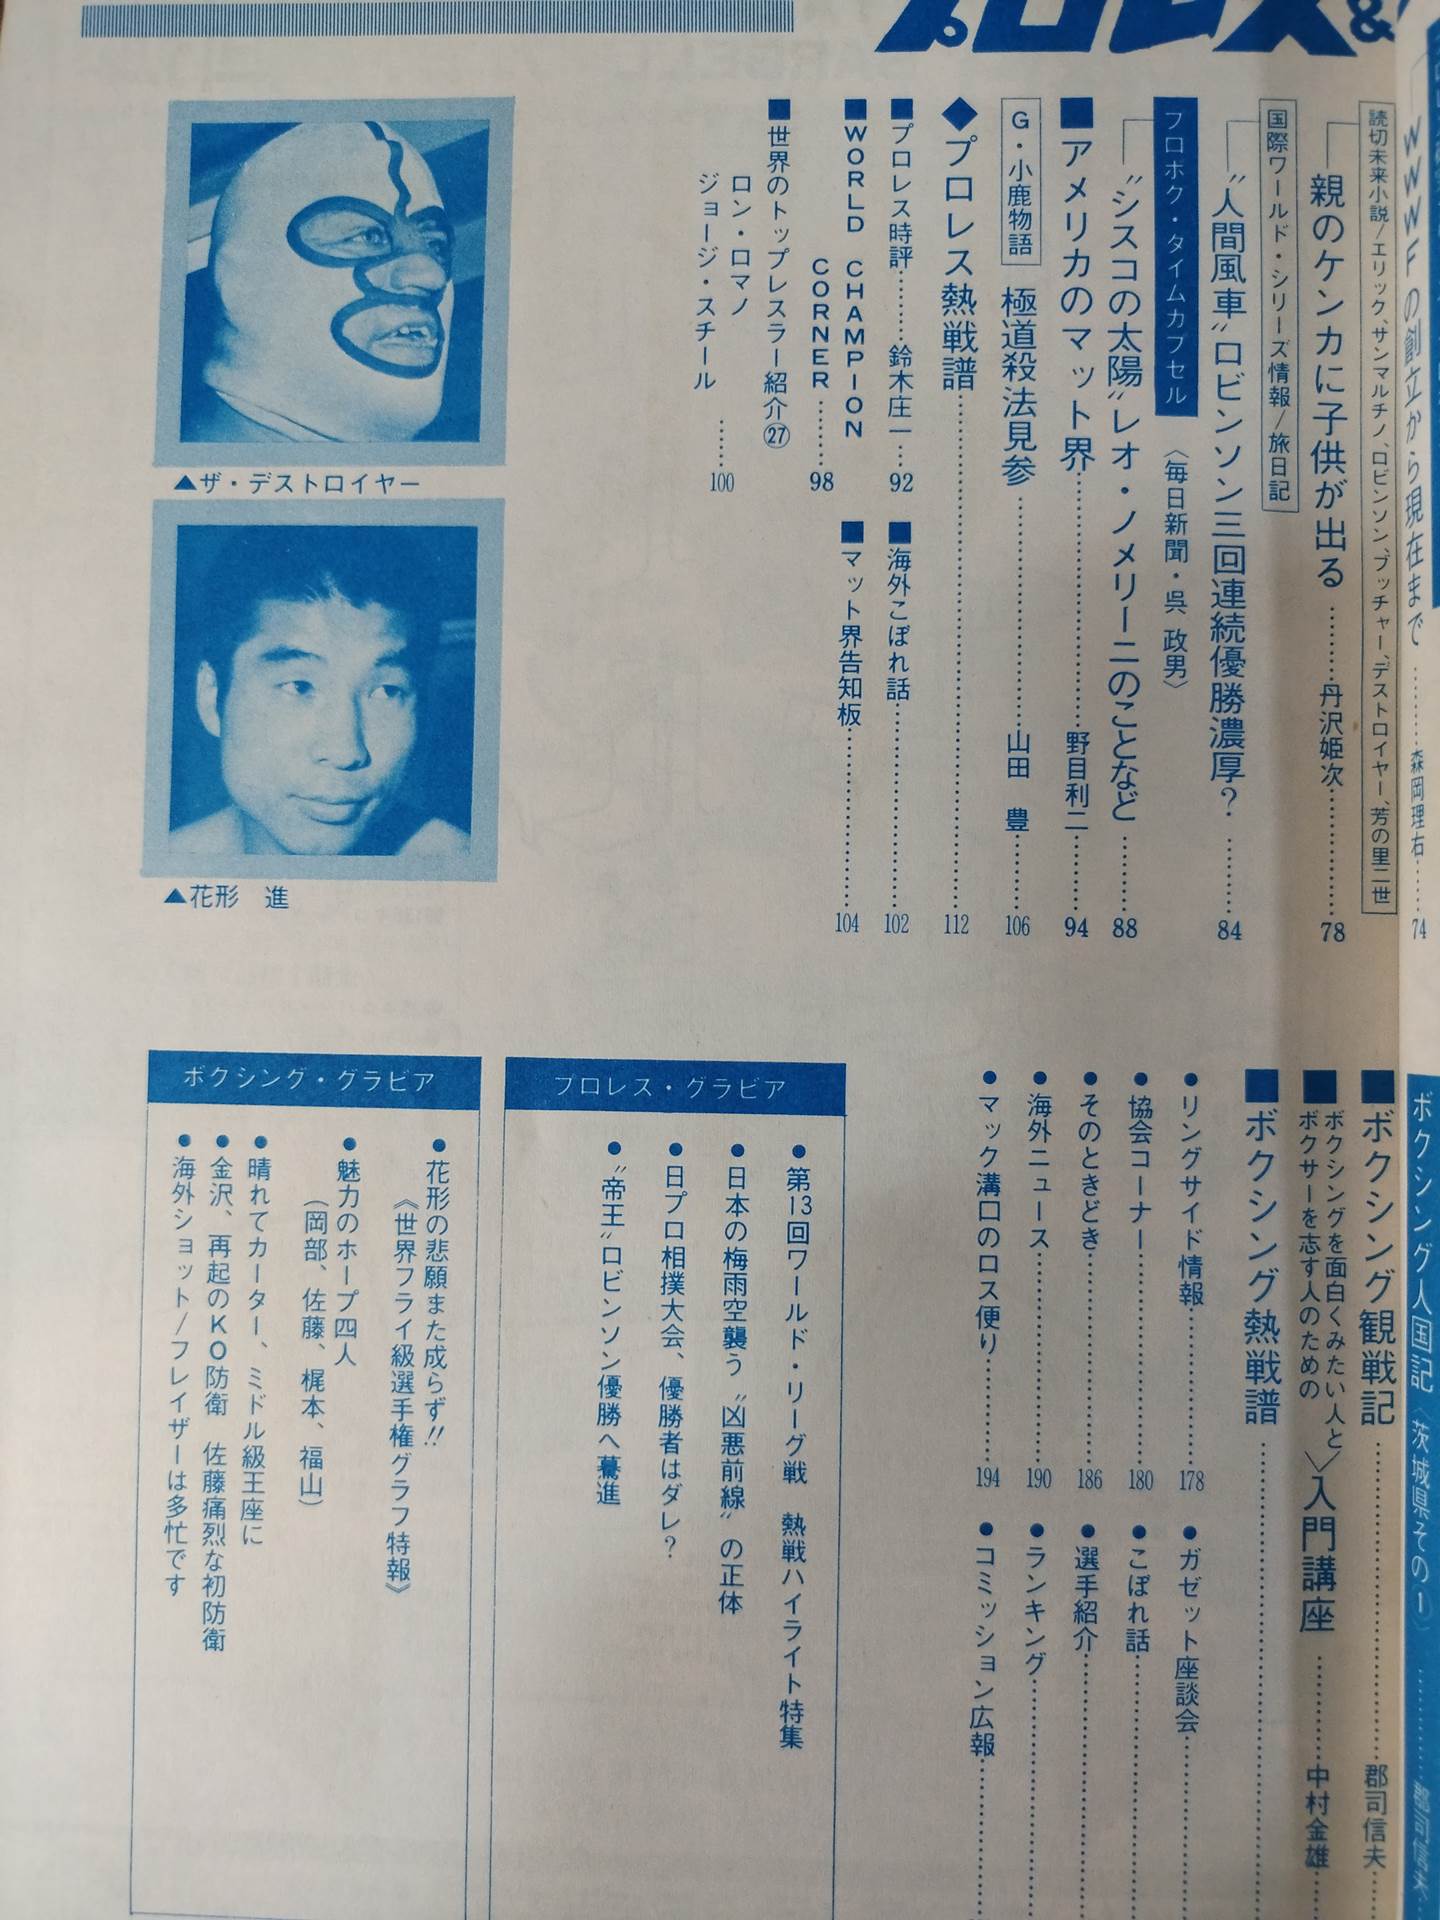 プロレス&
WWWFの創立から現在まで………森岡理右……74
読切未来小説/エリック、サンマルチノ、ロビンソン、ブッチャー、デストロイヤー、芳の里二世
親のケンカに子供が出る………丹沢姫次………78
国際ワールド・シリーズ情報/旅日記
〝人間風車〟ロビンソン三回連続優勝濃厚?………84
プロボク・タイムカプセル〈毎日新聞・呉 政男〉
〝シスコの太陽〟レオ・ノメリーニのことなど………88
■アメリカのマット界………野目利二………94
G・小鹿物語 極道殺法見参………山田 豊………106
◆プロレス熱戦譜………112
■プロレス時評………鈴木庄一…92
■海外こぼれ話………102
■WORLD CHAMPION
CORNER………98
■マット界告知板………104
■世界のトップレスラー紹介㉗
ロン・ロマノ
ジョージ・スチール……100
▲ザ・デストロイヤー
▲花形 進
ボクシング人国記〈茨城県その1〉………郡司信夫
■ボクシング観戦記………郡司信夫
■ボクシングを面白くみたい人と
ボクサーを志す人のための〉入門講座………中村金雄
■ボクシング熱戦譜………
●リングサイド情報………178
●ガゼット座談会………
●協会コーナー………180
●こぼれ話………
●そのときどき………186
●選手紹介………
●海外ニュース………190
●ランキング………
●マック溝口のロス便り………194
●コミッション広報………
プロレス・グラビア
●第13回ワールド・リーグ戦 熱戦ハイライト特集
●日本の梅雨空襲う〝凶悪前線〟の正体
●日プロ相撲大会、優勝者はダレ?
●〝帝王〟ロビンソン優勝へ驀進
ボクシング・グラビア
●花形の悲願また成らず!!
《世界フライ級選手権グラフ特報》
●魅力のホープ四人
(岡部、佐藤、梶本、福山)
●晴れてカーター、ミドル級王座に
●金沢、再起のKO防衛 佐藤痛烈な初防衛
●海外ショット/フレイザーは多忙です